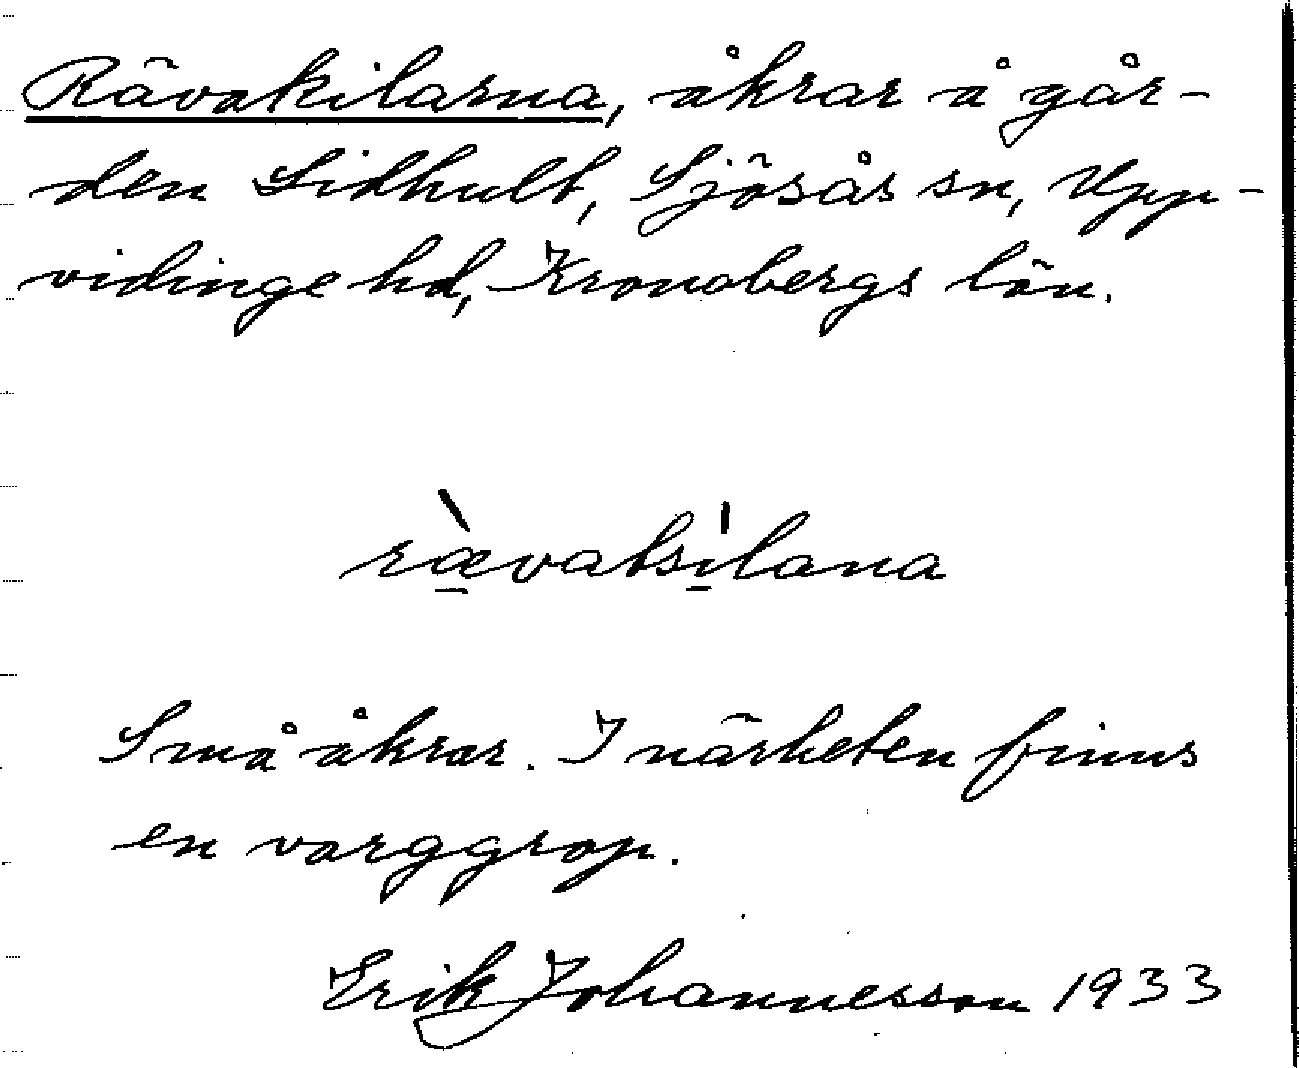 Rävakilarna, åkrar å går-
den Sidhult, Sjösås sn, Upp-
vidinge hd, Kronobergs län.
ræ̀vatsi̍lana
Små åkrar. I närheten finns
en varggrop.
Erik Johannesson 1933